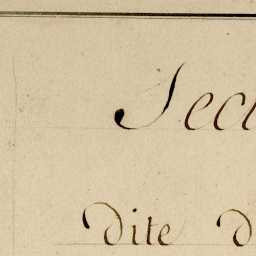 Sect
dite d